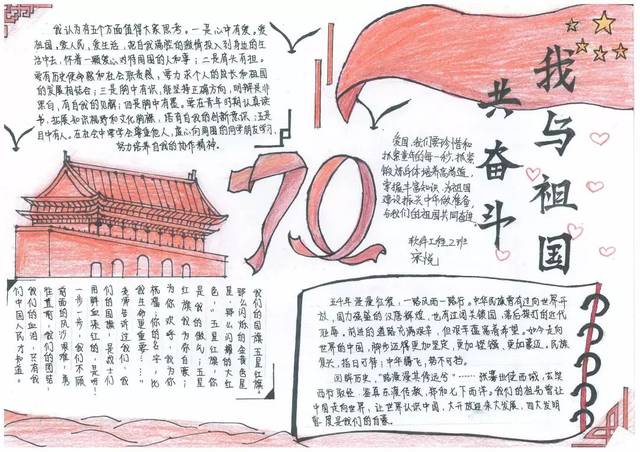 我与祖国
共奋斗
我认为有五个方面值得大家思考。一是心中有爱。爱
祖国,爱人民,爱生活,
的激情投入到身边的生
活中去,怀着一颗爱心对待周围的人和事;二是肩长有担。
要有历史使命感和社会职责感,要力求个人的成长和祖国
的发展相结合;三是脑中有识,能坚持正确方向,明辨是非
黑白,有自我的见解;四是胸中有墨。要在青年时期认真读
书,拓展知识视野和文化的底,培育自我的创新意识;五是
目中有人。在社会中要学会尊重他人,虚心向周围的同学朋友学习,
努力培养自我的协作精神。
70
爱国,我们要珍惜和
抓紧童年的每一秒,抓紧
锻炼身体培养高尚道,
掌握丰富知识,为祖国
建设振兴中华做准备,
与我们的祖国共同奋进。
软件工程2班
宋悦
我们的国旗,五星红旗。
那么闪烁的金黄色星
星,那么闪耀的大红
色。“五星红旗,你
是我的傲气,五星
红旗,我为你自豪;
为你欢呼,我为你
祝福,你的名字,比
我生命更重要……”
老师告诉过我们,
我们的国旗,是战士们
用鲜血染红的,是呀!
一步一步,我们不顾
前面的风沙艰难,勇
往直前,我们的团结,
我们的血泪,只有我
们中国人民才知道。
五千年漫漫征程,一路风雨一路行。中华民族曾有过向世界开
放,国力强盛的汉唐辉煌,也有过闭关锁国,落后挨打的近代
耻辱。前进的道路充满艰辛,但很丰富着希望。如今走向
世界的中国,脚步迈得更加坚定,更加铿锵,更加豪迈。民族
复兴,指日可待;中华腾飞,势不可挡。
回眸历史,“路漫漫其修远兮”……张骞出使西域,玄奘
西节取经,鉴真东渡传教,郑和七下西洋。我们的祖先曾让
中国走向世界,让世界认识中国,大开放迎来大发展,四大发明
曾是我们的自豪。